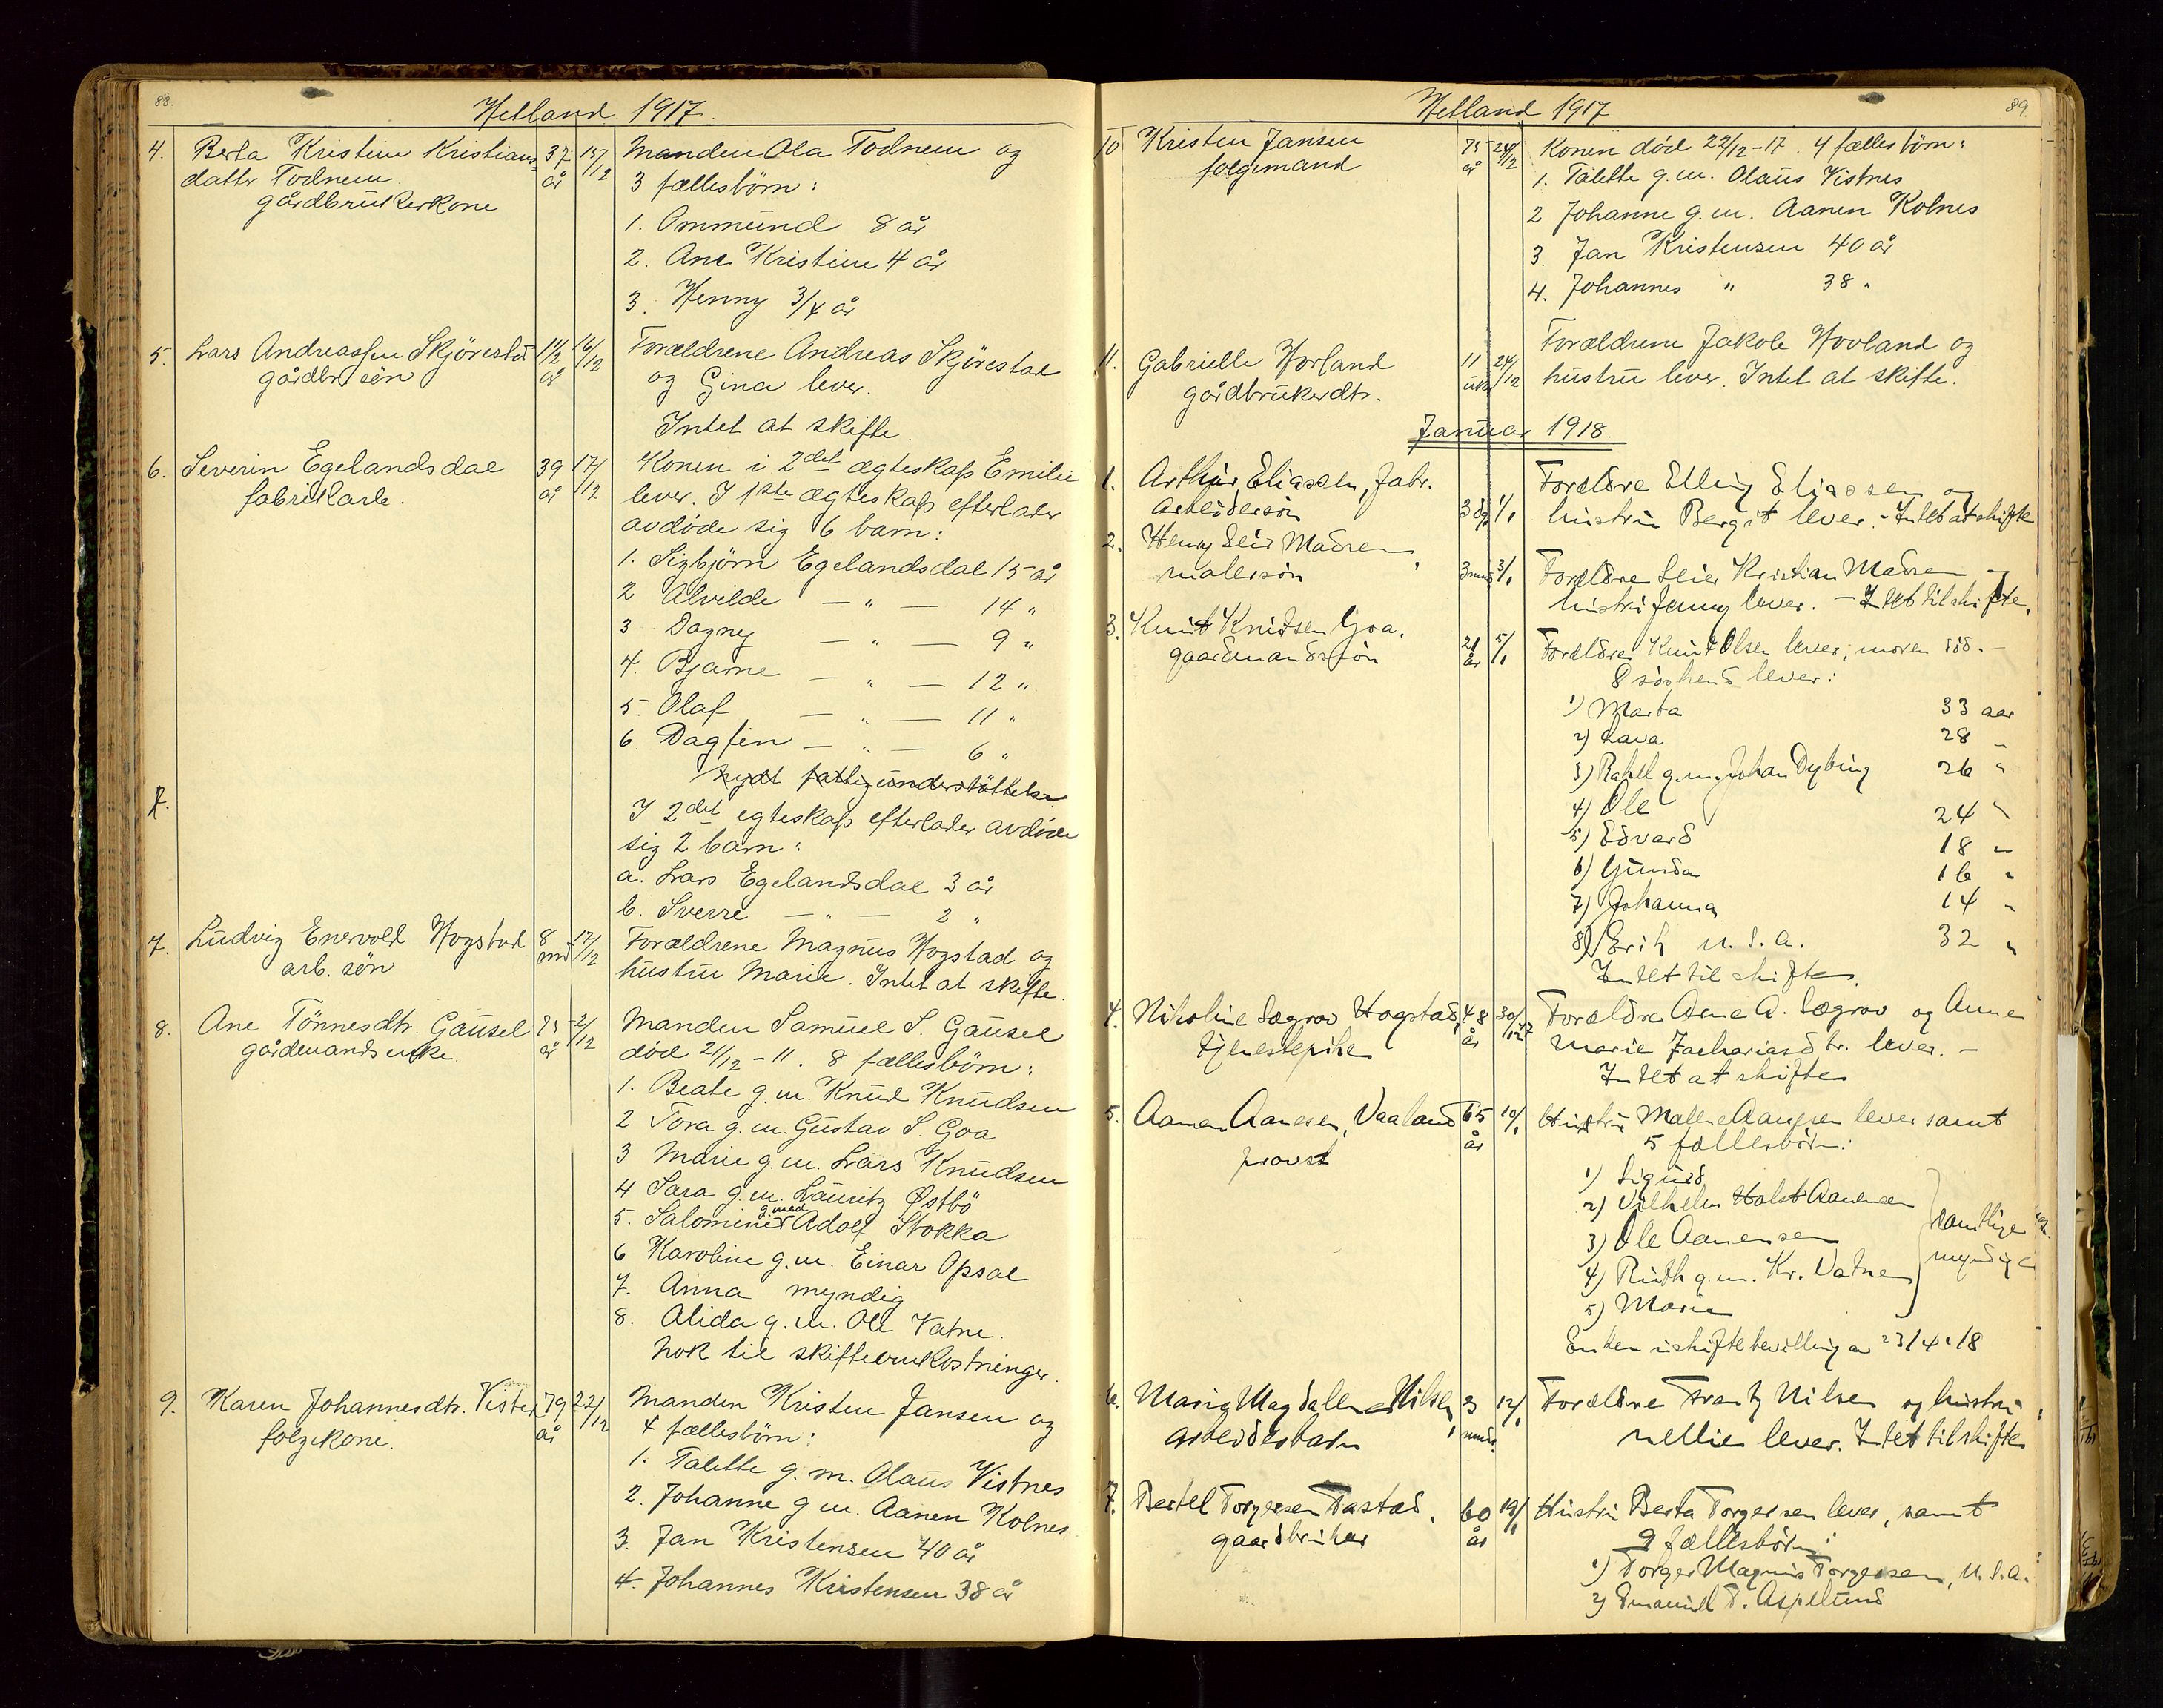 88.
Hetland 1917.
4. Berta Kristine Kristians- 37 år 15/12 Manden Ola Todnem og
datter Todnem 3 fællesbörn:
gårdbrukerkone
1. Ommund 8 år
2. Ane Kristine 4 år
3. Henny 3/4 år
5. Lars Andreassen Skjörestad 1 1/2 år 16/12 Forældrene Andreas Skjörestad
gårdbr. sön og Gina lever.
Intet at skifte.
6. Severin Egelandsdal 39 år 17/12 Konen i 2det ægteskap Emilie
fabrikarb. lever. I 1ste ægteskap efterlader
avdöde sig 6 barn:
1. Sigbjörn Egelandsdal 15 år
2 Alvilde — " — 14 "
3 Dagny — " — 9 "
4. Bjarne — " — 12 "
5. Olaf — " — 11 "
6. Dagfin — " — 6 "
Nydt fattigunderstöttelse
7.
I 2det egteskap efterlader avdöde
sig 2 barn:
a. Lars Egelandsdal 3 år
b. Sverre — " — 2 "
7. Ludvig Enevold Hogstad 8 md 17/12 Forældrene Magnus Hogstad og
arb. sön hustru Marie. Intet at skifte.
8. Ane Tönnesdtr. Gausel 75 år 21/12 Manden Samuel S. Gausel
gårdmandsenke. död 21/12 - 11. 8 fællesbörn:
1. Beate g.m. Knud Knudsen
2 Tora g.m. Gustav S. Goa
3 Marie g.m. Lars Knudsen
4 Sara g.m. Lauritz Østbö
5. Salomine g.med Adolf Stokka
6 Karoline g.m. Einar Opsal
7. Anna myndig
8. Alida g.m. Ole Vatne.
Nok til skifteomkostninger.
9. Karen Johannesdtr. Viste 79 år 22/12 Manden Kristen Jansen og
folgekone. 4 fællesbörn:
1. Talette g.m. Olaus Vistnes
2. Johanne g.m. Aanen Kolnes
3. Jan Kristensen 40 år
4. Johannes Kristensen 38 år
89.
Hetland 1917
10 Kristen Jansen 75 år 24/12 Konen död 22/12-17. 4 fællesbörn:
folgemand 1. Talette g.m. Olaus Vistnes
2 Johanne g.m. Aanen Kolnes
3. Jan Kristensen 40 år
4. Johannes " 38 "
11. Gabrielle Hovland 11 uk. 24/12 Forældrene Jakob Hovland og
gårdbrukerdtr. hustru lever. Intet at skifte.
Januar 1918.
1. Arthur Eliassen, fabr. 3 dg. 1/1 Forældre Elling Eliassen og
arbeiderson hustru Bergit lever. - Intet at skifte
2. Henry Leir Madsen, 3 mnd 3/1 Forældre Leir Kristian Madsen og
malerson hustru Jenny lever. - Intet til skifte.
3. Knut Knutsen Goa. 21 år 5/1 Forældre Knut Olsen lever, moren död. -
gaardmandsson 8 söskend lever:
1) Marta 33 aar
2) Lava 28 "
3) Rakel g.m. Johan Dybing 26 "
4) Ole 24 "
5) Edvard 18 "
6) Gunda 16 "
7) Johanna 14 "
8) Erik U.S.A. 32 "
Intet til skifte.
4. Nikoline Sægrov Hogstad, 48 år 30/12 17 Forældre Arne A. Sægrov og Anne
tjenestepike Marie Zachariasdtr. lever. -
Intet at skifte
5. Aanen Aanesen, Vaaland 65 år 10/1 Hustru Malene Aanesen lever samt
provst 5 fællesbörn:
1) Sigurd
2) Vilhelm Holst Aanensen
3) Ole Aanensen
4) Ruth g.m. Kr. Vatne
5) Marie
samtlige
myndige
Enken uskiftebevilling av 23/4-18
6. Marie Magdalene Nilsen, 3 mnd. 12/1 Forældre Frantz Nilsen og hustru
arbeiderbarn Nellie lever. Intet til skifte
7. Bertel Torgersen Tastad. 60 år 19/1 Hustru Berta Torgersen lever, samt
gaardbruker 9 fællesbörn:
1) Torger Magnus Torgersen, U.S.A.
2) Emanuel T. Aspelund